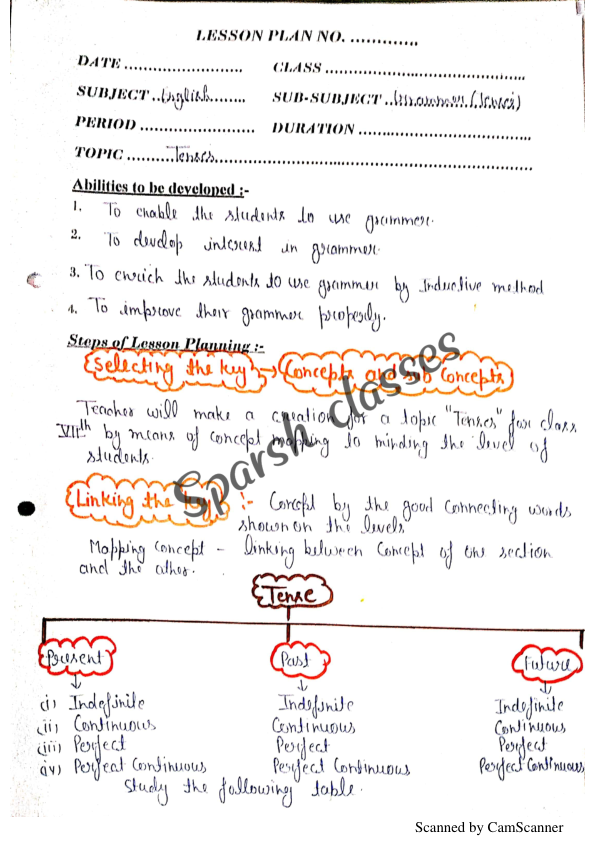 LESSON PLAN NO. .............
DATE ........................ CLASS ........................................
SUBJECT ..English....... SUB-SUBJECT ..Grammer.(Tenses)
PERIOD ....................... DURATION .................................
TOPIC ..........Tenses.................................................................
Abilities to be developed :-
1. To enable the students to use grammer.
2. To develop interest in grammer.
3. To enrich the students to use grammer by Inductive method
4. To improve their grammer properly.
Steps of Lesson Planning :-
Selecting the key → Concepts and sub concepts
Teacher will make a creation for a topic "Tenses" for class
VIIth by means of concept mapping to minding the level of
students.
Linking the key :- Concept by the good connecting words
shown on the levels
Mapping concept - linking between concept of one section
and the other.
Tense
Present Past Future
(i) Indefinite Indefinite Indefinite
(ii) Continuous Continuous Continuous
(iii) Perfect Perfect Perfect
(iv) Perfect Continuous Perfect Continuous Perfect Continuous
Study the following table.
Sparsh classes
Scanned by CamScanner